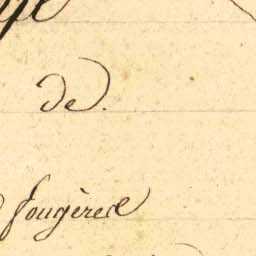 de.
fougères